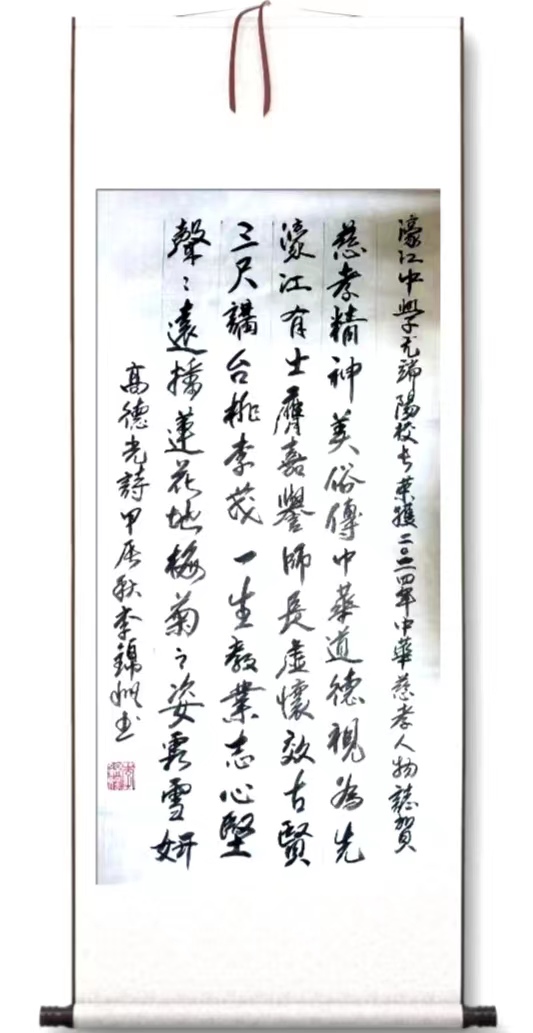 濠江中學尤端陽校長榮獲二〇二四年中華慈孝人物誌賀
慈孝精神美俗傳中華道德視為先
濠江有士膺嘉譽師長虛懷效古賢
三尺講台桃李茂一生教業志心堅
聲〻遠播蓮花地梅菊之姿雪妍
高德光詩甲辰秋李錦書